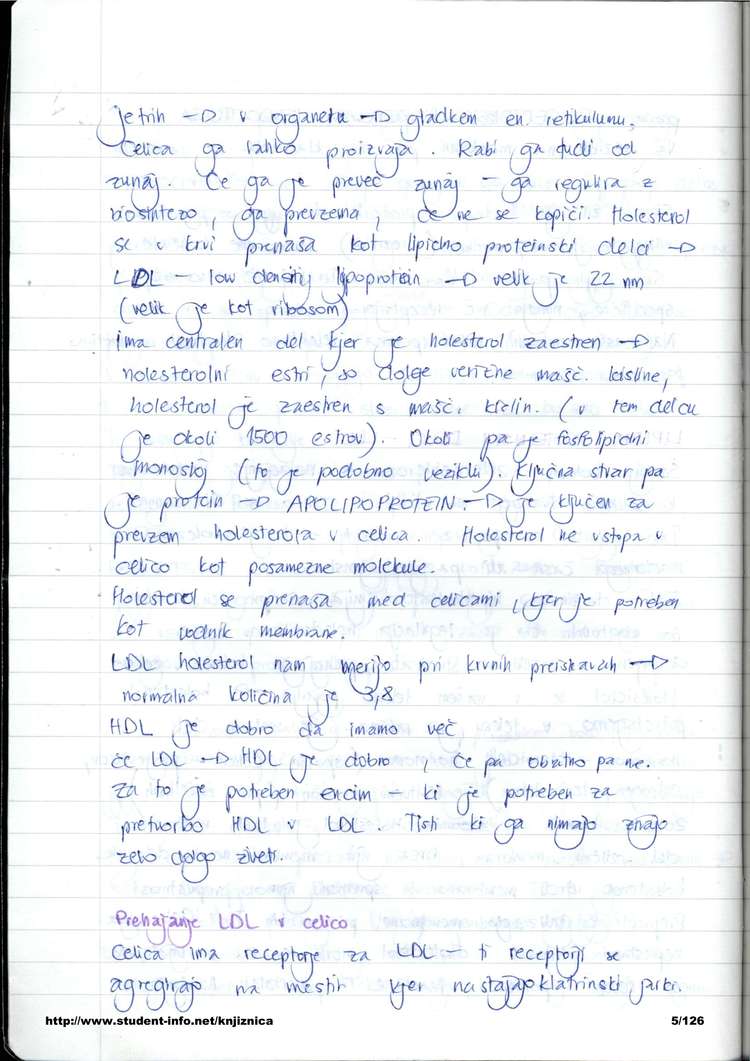 jetrih → v organelu → gladkem en. retikulumu.
Celica ga lahko proizvaja. Rabi ga tudi od
zunaj. Če ga je preveč zunaj - ga regulira z
biosintezo, ga prevzema, če ne se kopiči. Holesterol
se v krvi prenaša kot lipidno proteinski delci →
LDL - low density lipoprotein → velik je 22 nm
(velik je kot ribosom)
ima centralen del kjer je holesterol zaestren →
holesterolni estri, so dolge verižne mašč. kisline,
holesterol je zaestren s mašč. kislin. (v tem delcu
je okoli 1500 estrov). Okoli pa je fosfolipidni
monosloj (to je podobno veziklu). Ključna stvar pa
je protein → APOLIPOPROTEIN. → je ključen za
prevzem holesterola v celica. Holesterol ne vstopa v
celico kot posamezne molekule.
Holesterol se prenaša med celicami, kjer je potreben
kot vodnik membrane.
LDL holesterol nam merijo pri krvnih preiskavah →
normalna količina je 3,8
HDL je dobro da imamo več
če LDL → HDL je dobro, če pa obratno pa ne.
Za to je potreben encim - ki je potreben za
pretvorbo HDL v LDL. Tisti ki ga nimajo znajo
zelo dolgo živeti.
Prehajanje LDL v celico
Celica ima receptorje za LDL - ti receptorji se
agregirajo na mestih kjer nastajajo klatrinski
http://www.student-info.net/knjiznica
5/126